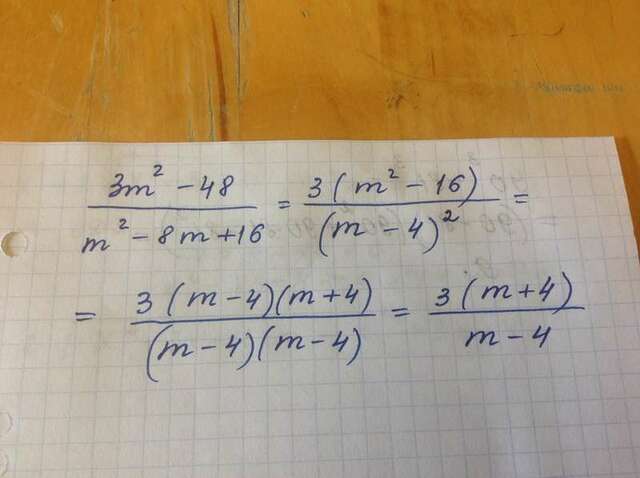 (3m² - 48)/(m² - 8m + 16) = 3(m² - 16)/(m - 4)² =
= 3(m - 4)(m + 4)/(m - 4)(m - 4) = 3(m + 4)/(m - 4)